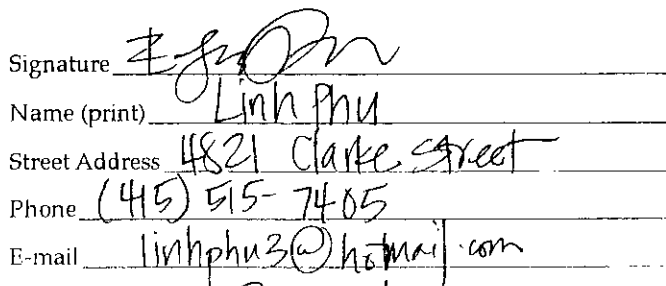 Signature
Name (print) Linh Phu
Street Address 4821 Clarke Street
Phone (415) 515-7405
E-mail linhphu3@hotmail.com